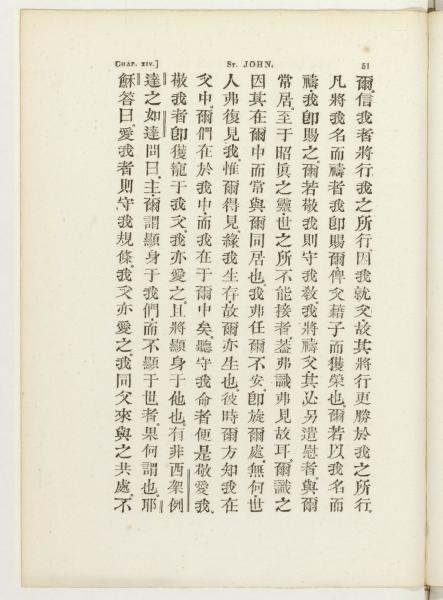 [CHAP. XIV.] ST. JOHN. 51
爾。信我者將行我之所行因我就父故其將行更勝於我之所行。
凡將我名而禱者我卽賜爾俾父藉子而獲榮也。爾若以我名而
禱我卽賜之。爾若敬我則守我敎我將禱父其必另遣慰者與爾
常居。至于昭眞之靈世之所不能接者葢弗識弗見故耳。爾識之
因其在爾中而常與爾同居也。我弗任爾不安卽旋爾處。無何世
人弗復見我。惟爾得見緣我生存故爾亦生也。彼時爾方知我在
父中。爾們在於我中。而我在于爾中矣。聽守我命者便是敬愛我。
敬我者卽獲寵于我父。我亦愛之。且將顯身于他也。有非西架例
達之如達問曰。主爾謂顯身于我們。而不顯于世者。果何謂也。耶
穌答曰。愛我者則守我規條。我父亦愛之。我同父來與之共處。不